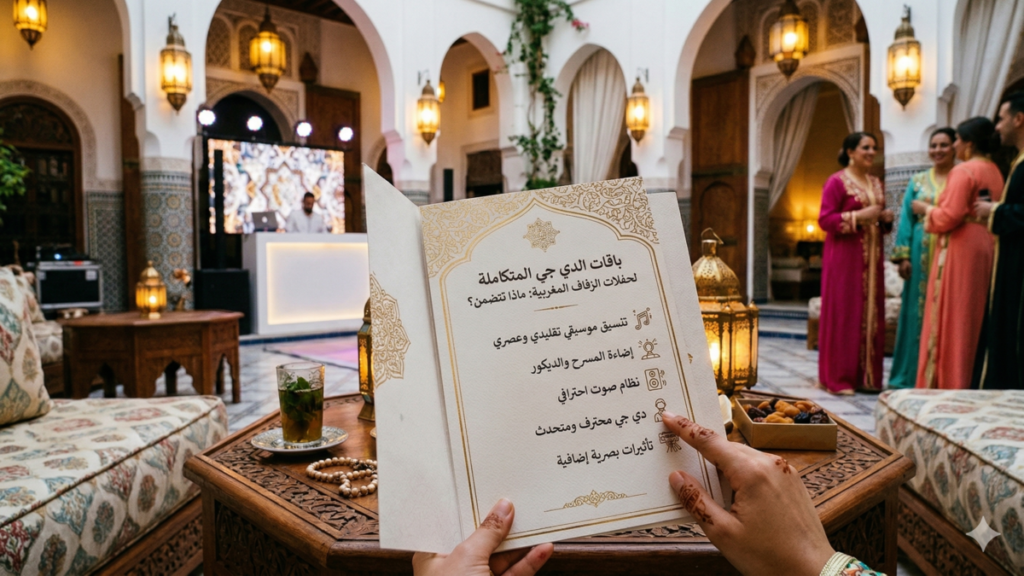 باقات الدي جي المتكاملة
لحفلات الزفاف المغربية: ماذا تتضمن؟
تنسيق موسيقي تقليدي وعصري
إضاءة المسرح والديكور
نظام صوت احترافي
دي جي محترف ومتحدث
تأثيرات بصرية إضافية